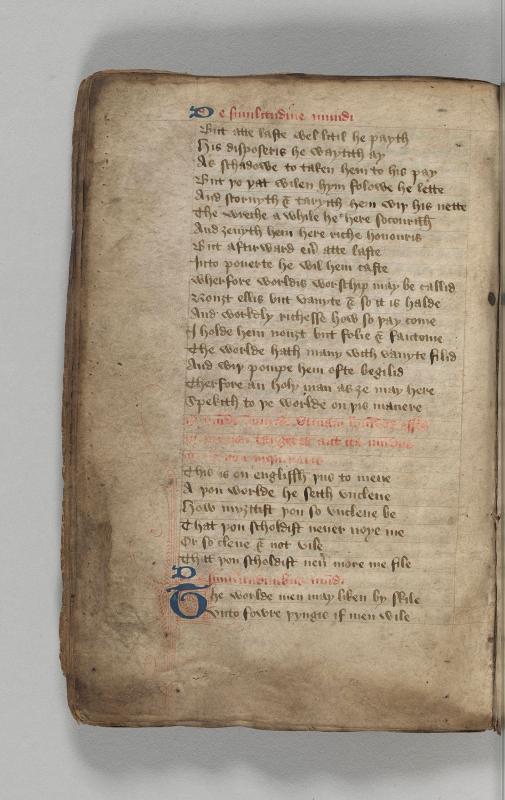 De similitudine mundi
But atte laste wel litil he payth
His disposeris he waytith ay
As schadowe to taken hem to his pay
But þo þat wilen hym folowe he lette
And scornyth & taryith hem wiþ his nette
The wreche a while he here socourith
And ȝeuyth hem here riche honouris
But aftirward eu͛ atte laste
Into pouerte he wil hem caste
Wherfore worldis worschip may be callid
Nouȝt ellis but vanyte & so it is halde
And worldly richesse how so þay come
I holde hem nouȝt but folie & fantome
The worlde hath many with vanyte filid
And wiþ pompe hem ofte begilid
Therfore an holy man as ȝe may here
Spekith to þe worlde on þis manere
This is on englissh þus to mene
A þou worlde he seith vnclene
How myȝttist þou so vnclene be
That þou scholdist neuer noye me
Or so clene & not vile
That þou scholdist neu͛ more me file
De similitudinibus mundi
The worlde men may liken by skile
Vnto fowre þyngis if men wile